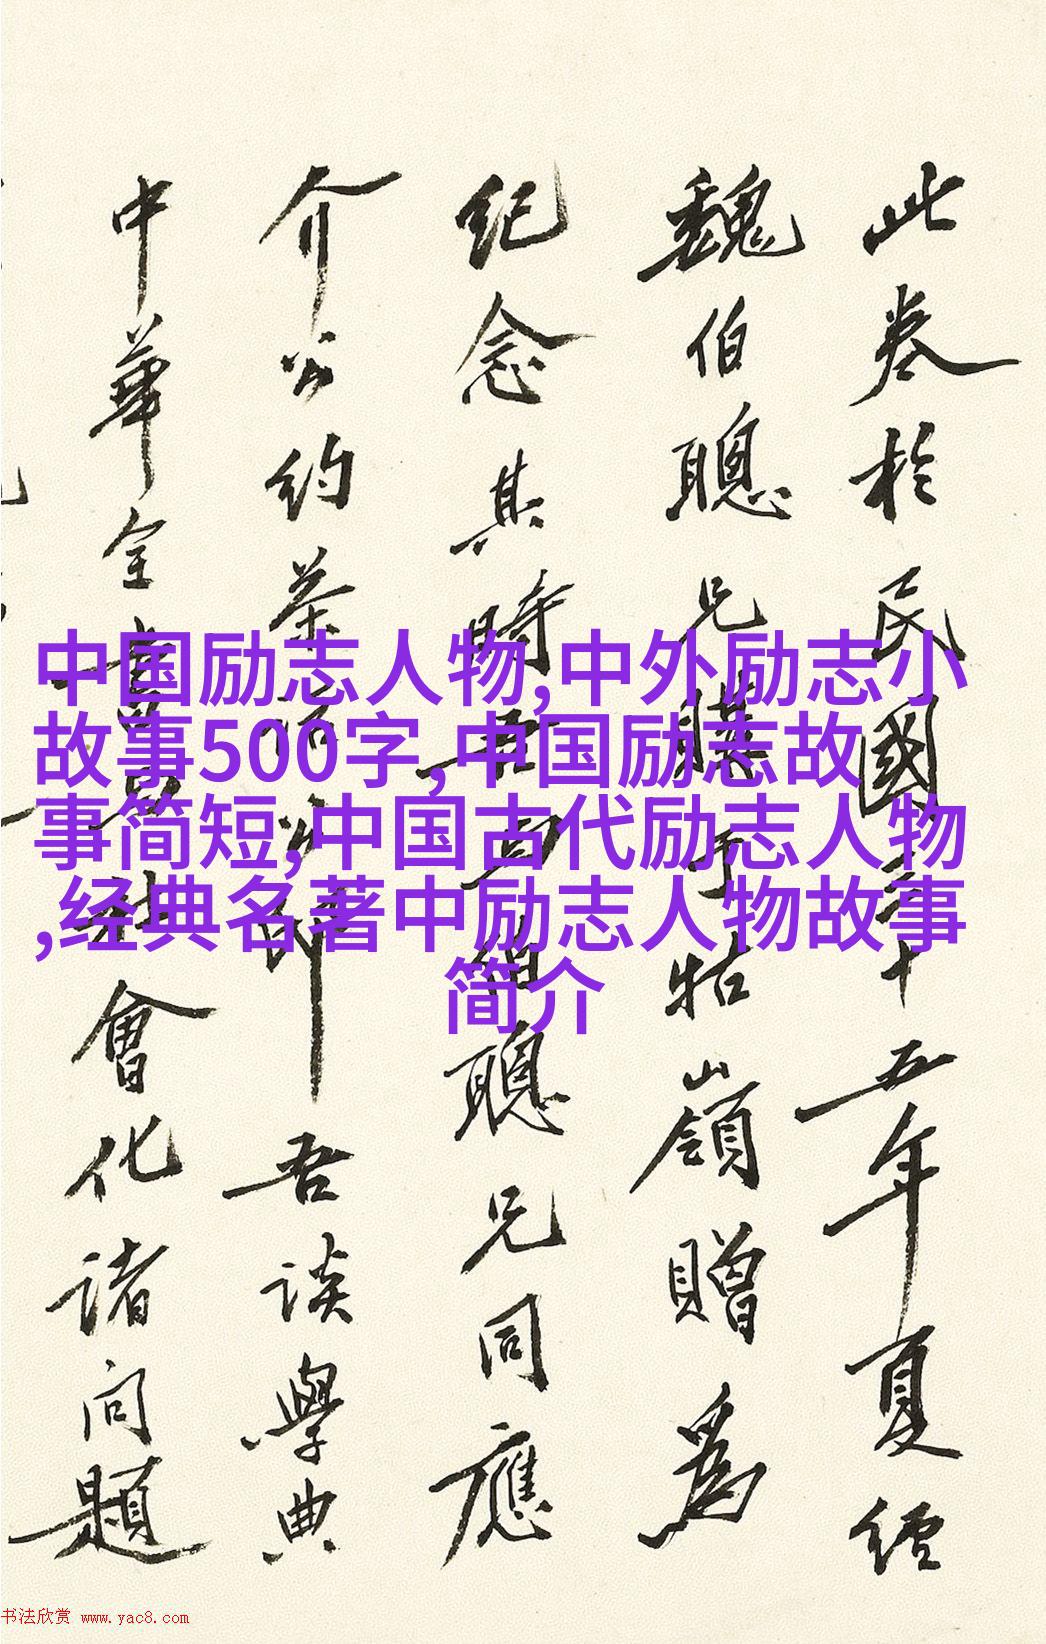 此卷於民國三十五年夏經
魏伯聰兄購于牯嶺贈為
紀念其時吾與伯聰兄同應
介公約茶
吾談學典
中華全書
會化諸问題
中国励志人物,中外励志小
故事500字,中国励志故
事简短,中国古代励志人物
,经典名著中励志人物故事
简介
书法欣赏 www.yac8.com